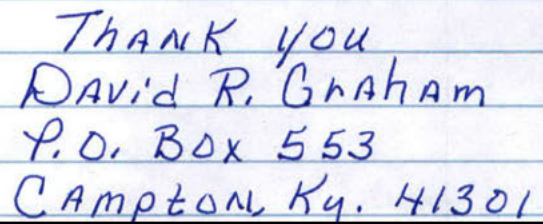 Thank you
David R. Graham
P.O. Box 553
Campton, Ky. 41301